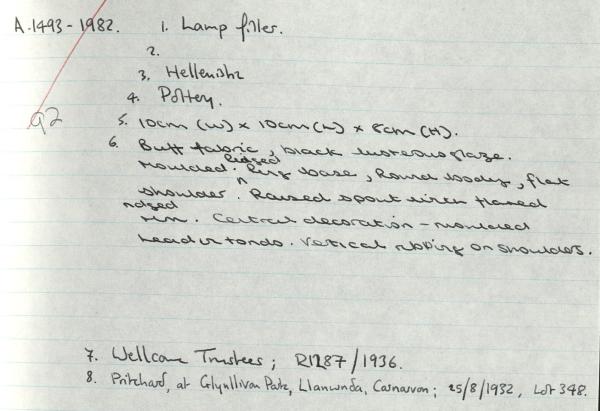 A.1493-1982. 1. Lamp filler.
2.
3. Hellenistic
4. Pottery.
92
5. 10cm (W) x 10cm (L) x 8cm (H).
6. Buff fabric, black lustrous glaze.
Moulded. Ridged Ring base, Round body, flat
shoulder. Raised spout with flared
ridged rim. Central decoration - moulded
head in tondo. Vertical ribbing on shoulders.
7. Wellcome Trustees; R1287/1936.
8. Pritchard, at Glynllivon Park, Llanwnda, Carnarvon; 25/8/1932, Lot 348.